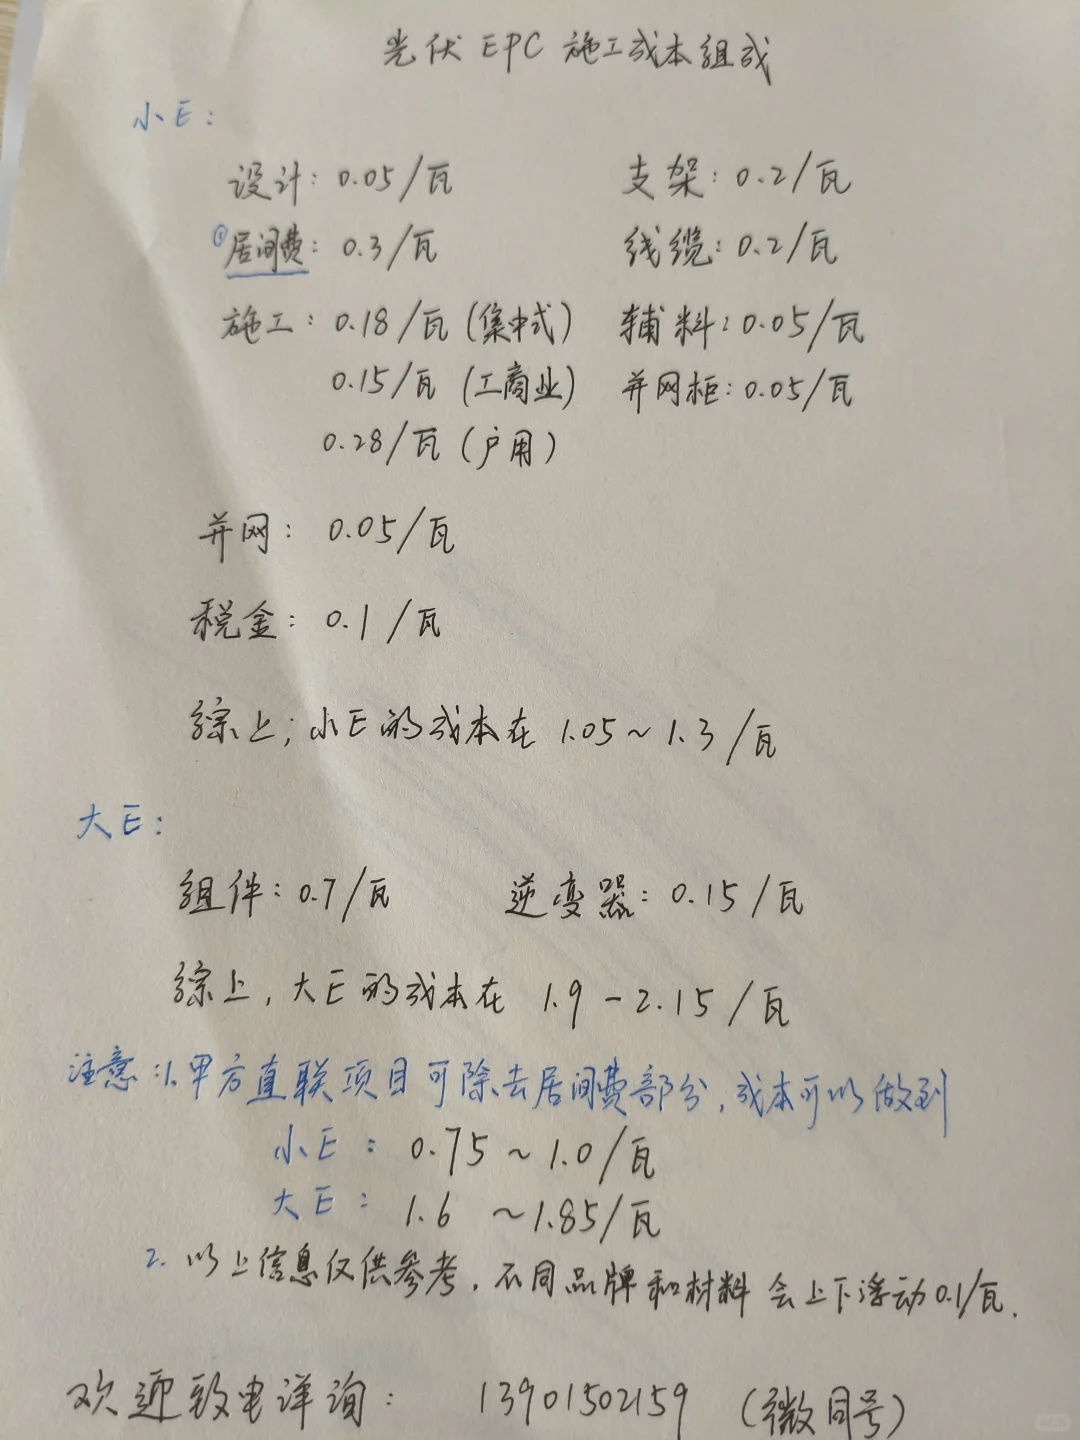 光伏 EPC 施工成本组成
小E:
设计: 0.05/瓦 支架: 0.2/瓦
①居间费: 0.3/瓦 线缆: 0.2/瓦
施工: 0.18/瓦 (集中式) 辅料: 0.05/瓦
0.15/瓦 (工商业) 并网柜: 0.05/瓦
0.28/瓦 (户用)
并网: 0.05/瓦
税金: 0.1/瓦
综上; 小E的成本在 1.05~1.3/瓦
大E:
组件: 0.7/瓦 逆变器: 0.15/瓦
综上, 大E的成本在 1.9-2.15/瓦
注意:1.甲方直联项目可除去居间费部分,成本可以做到
小E: 0.75~1.0/瓦
大E: 1.6~1.85/瓦
2. 以上信息仅供参考, 不同品牌和材料会上下浮动0.1/瓦.
欢迎致电详询: 13901502159 (微同号)